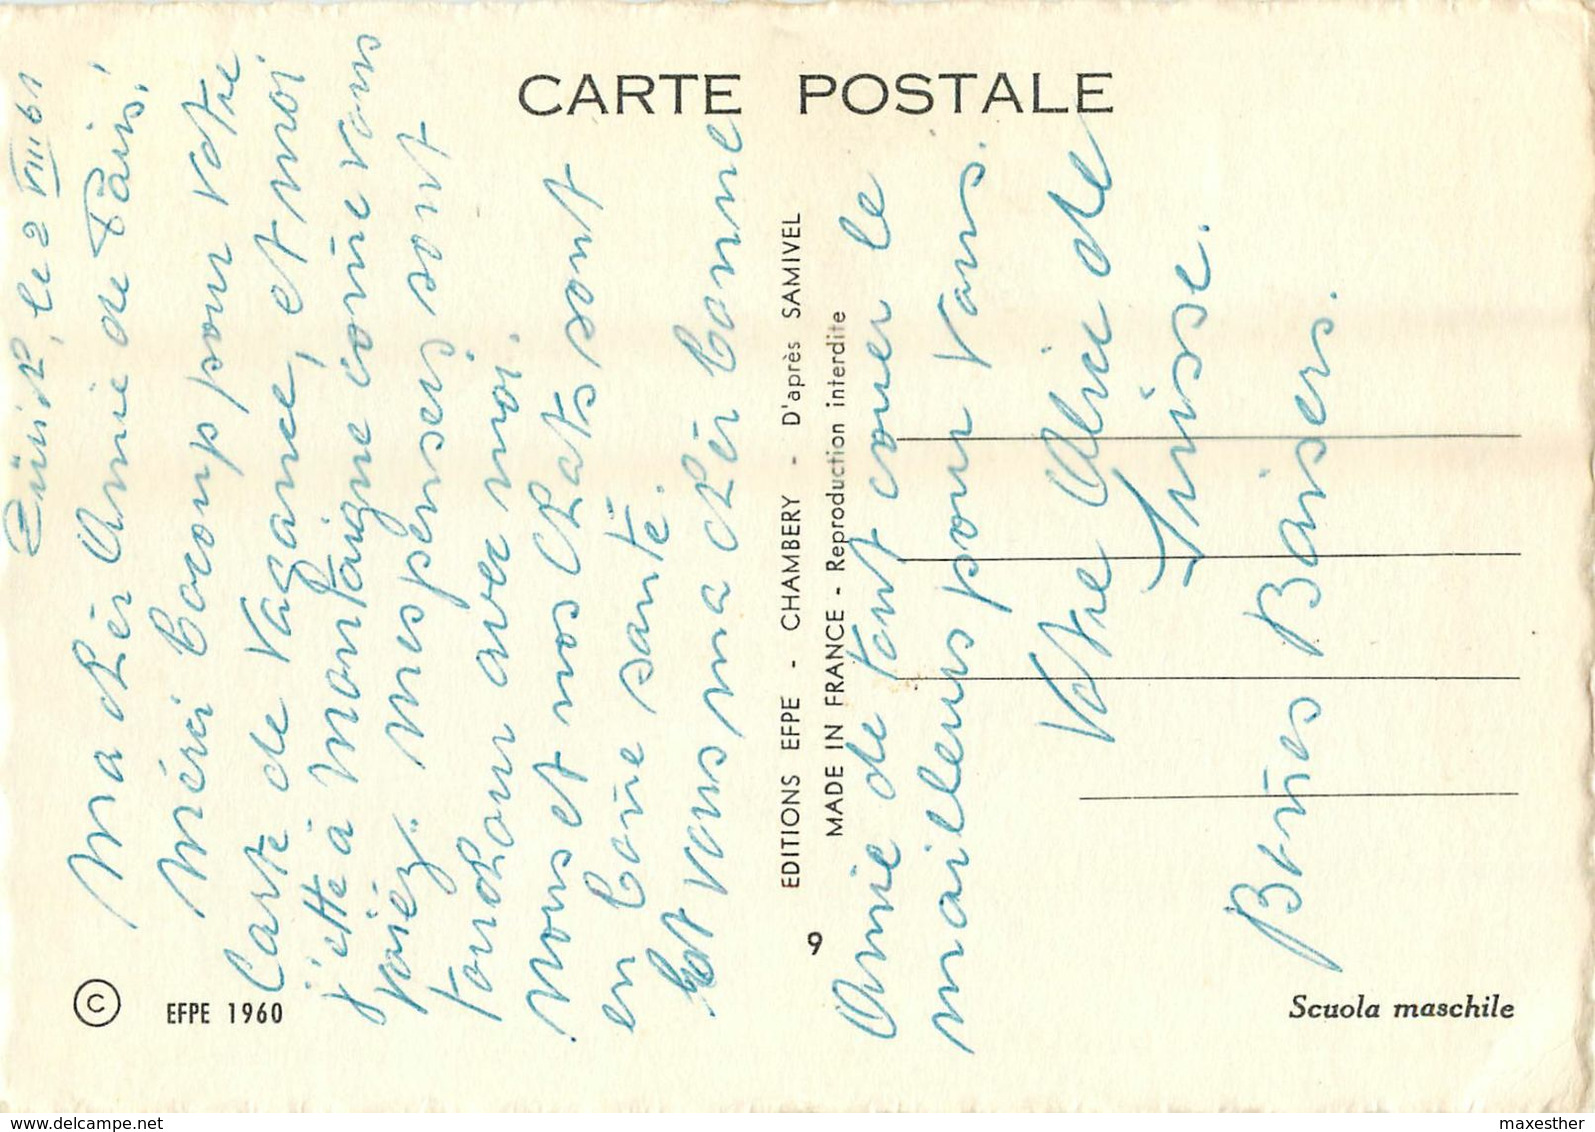 CARTE POSTALE
Zürich, le 2 VIII 61
Ma chér Amie de Paris!
Mérci bocoup pour votre
Carte de vagance, et moi
j'etté à Montaigne comme vous
voiéz. Mes penseés sont
touchour avec moi.
Mons et mes chats sont
en bone santé.
Et vous ma chér bonne
Amie de tout couer le
mailleurs pour vous.
Votre Alice de
Suisse.
Bonas Baisers.
EDITIONS EFPE - CHAMBERY - D'après SAMIVEL
MADE IN FRANCE - Reproduction interdite
9
© EFPE 1960
Scuola maschile
www.delcampe.net
maxesther